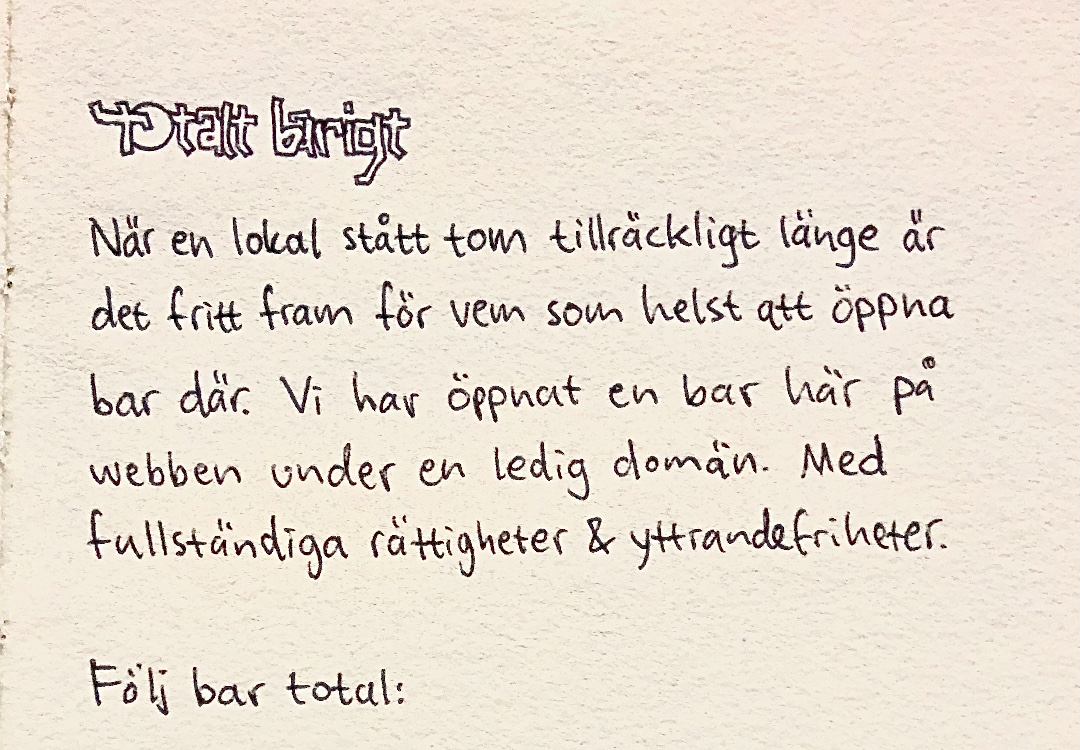 totalt barigt
När en lokal stått tom tillräckligt länge är
det fritt fram för vem som helst att öppna
bar där. Vi har öppnat en bar här på
webben under en ledig domän. Med
fullständiga rättigheter & yttrandefriheter.
Följ bar total: